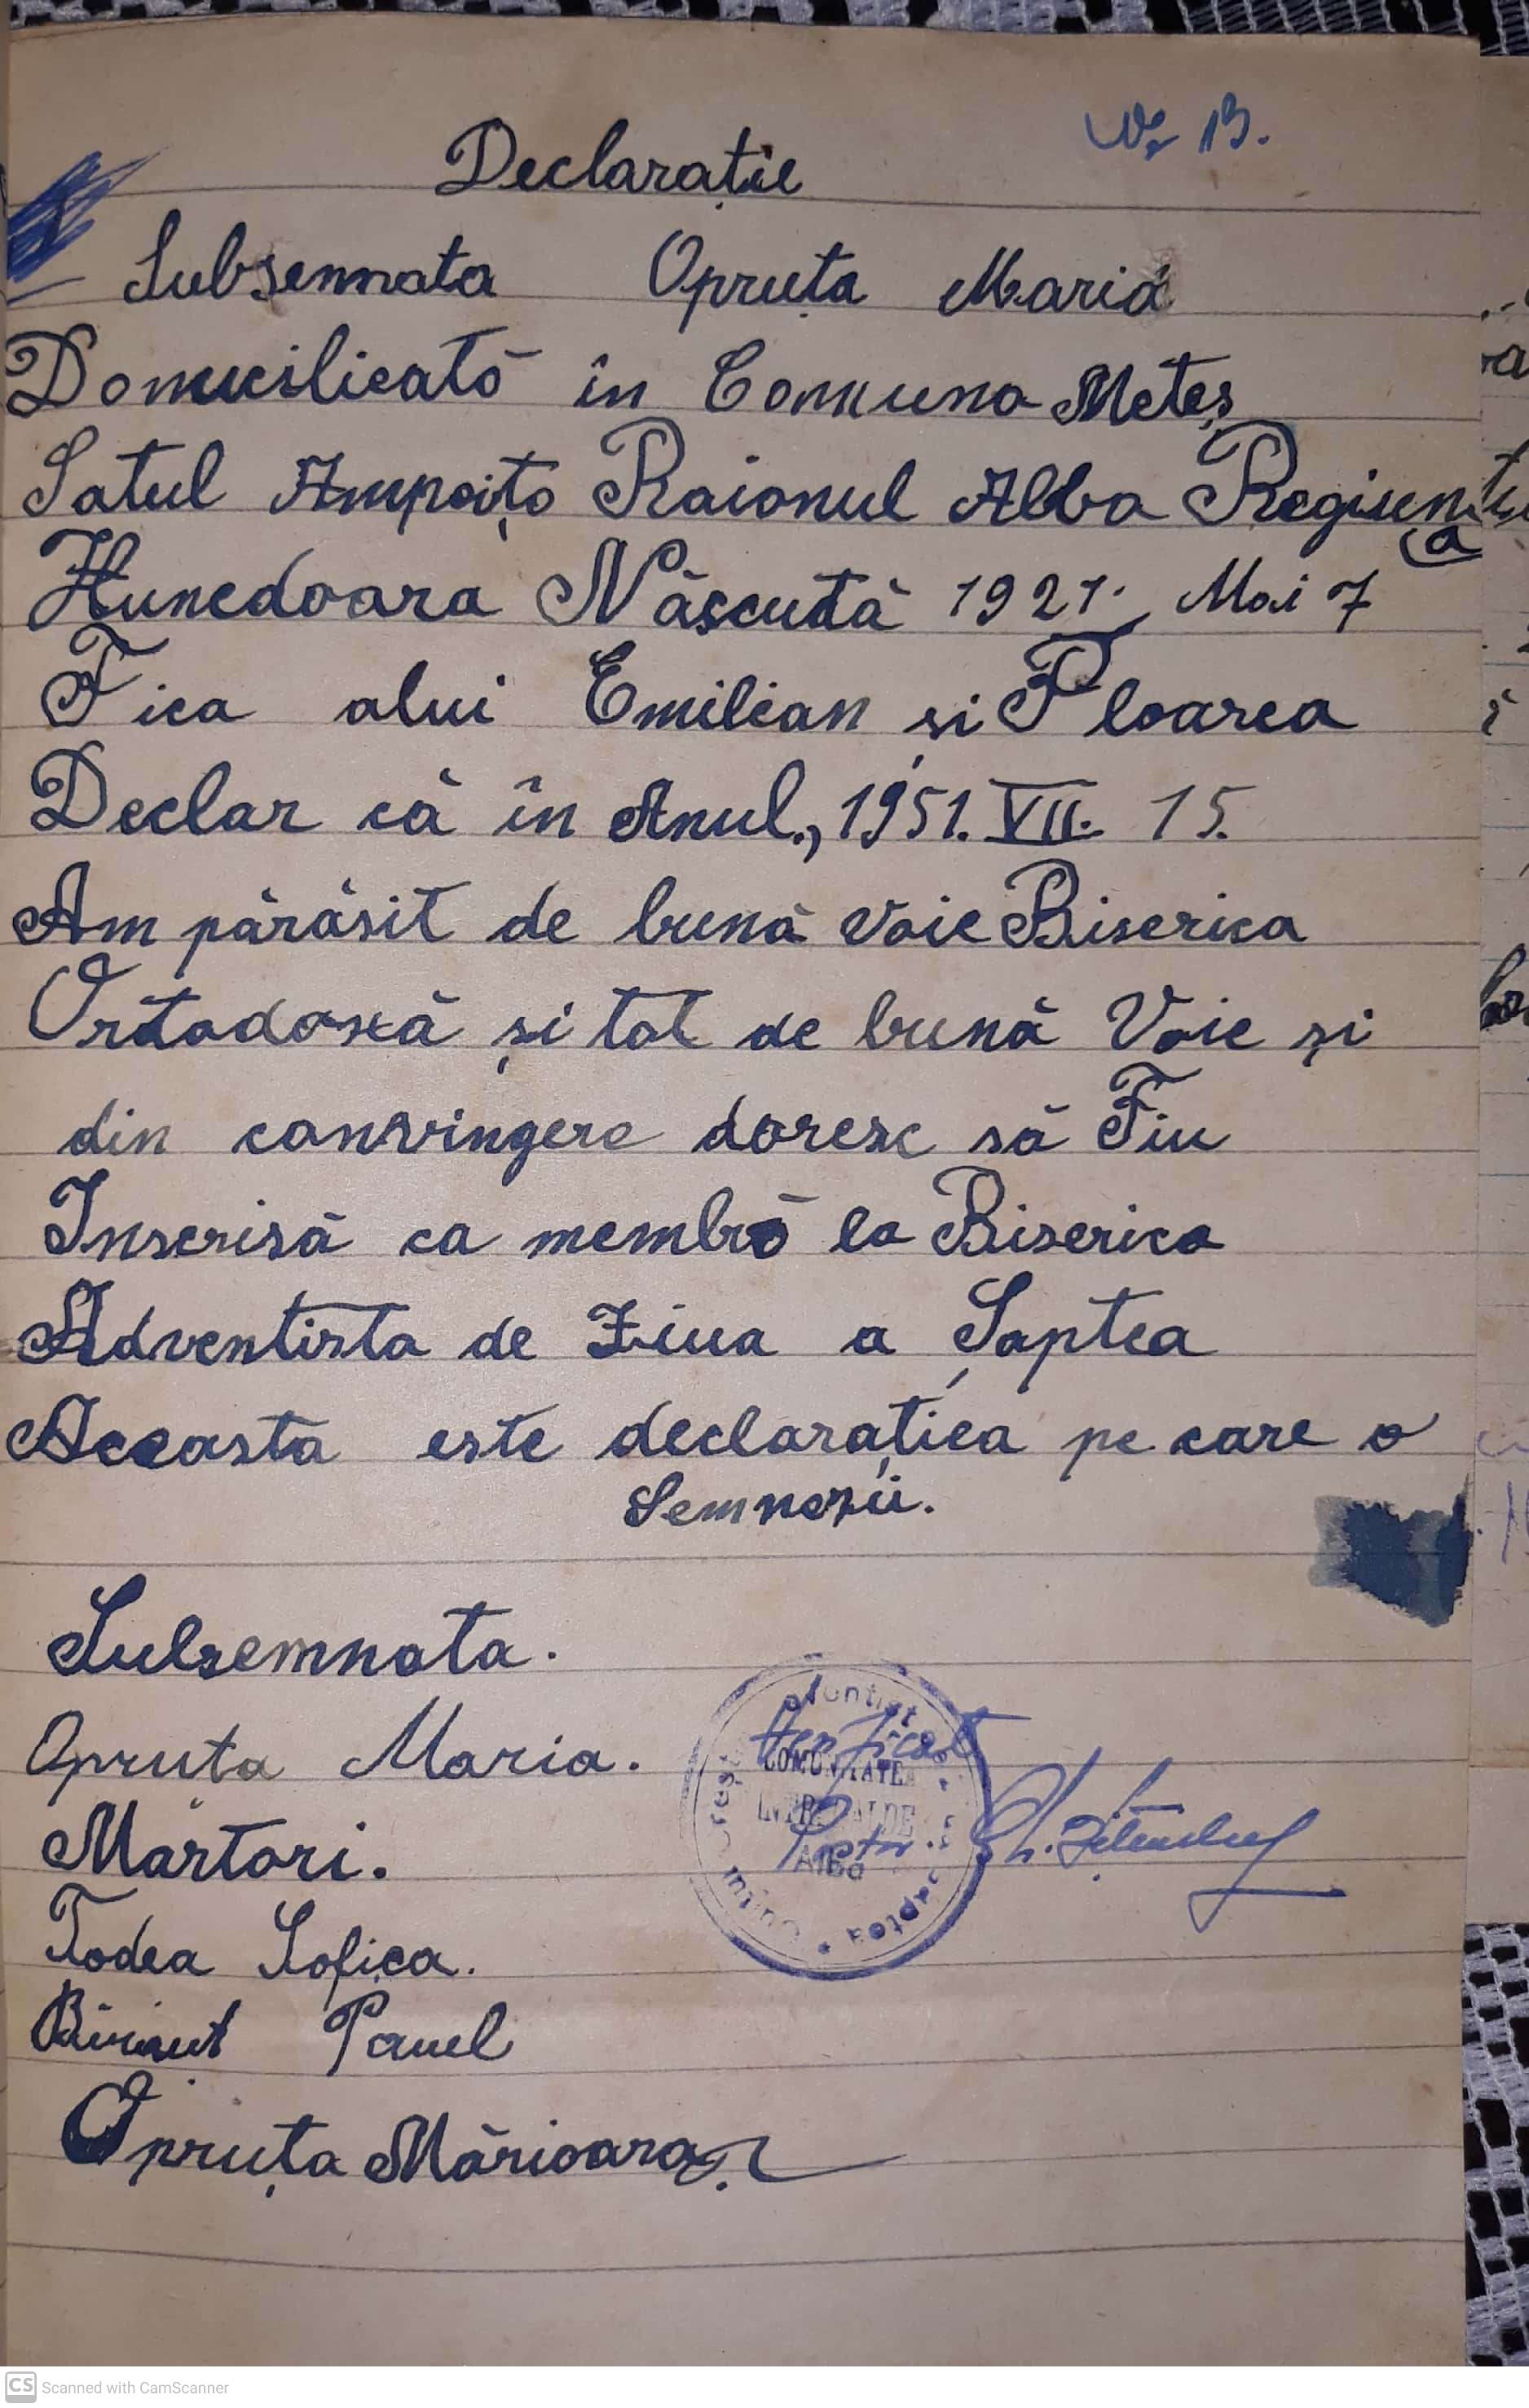 Nr 13.
Declarație
Subsemnata Opruța Maria
Domicilieată în Comuna Meteș
Satul Ampoița Raionul Alba Regiun
ea
Hunedoara Născută 1921. Mai 7
Fica alui Emilian și Floarea
Declar că în Anul., 1951. VII. 15.
Am părăsit de bună voie Biserica
Ortodoxă și tot de bună Voie și
din convingere doresc să Fiu
Inscrisă ca membră la Biserica
Adventista de Ziua a Șaptea
Aceasta este declarațiea pe care o
Semnezii.
Subsemnata.
Opruța Maria.
COMUNITATEA
Alba
Pastor Gh.
Martori.
Todea Sofica.
Pavel
Opruța Mărioara.
CS Scanned with CamScanner